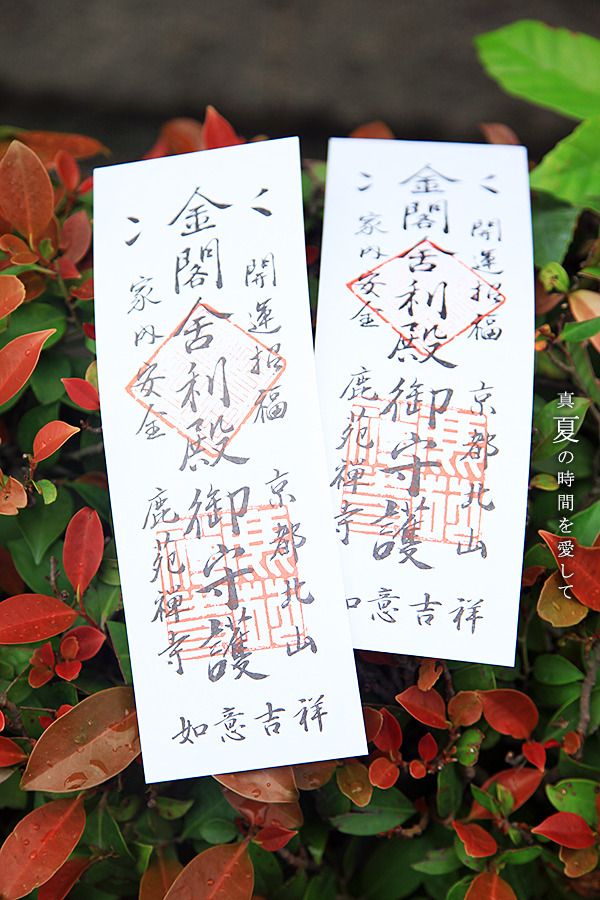 金閣舍利殿御守護
開運招福
家内安全
京都北山
鹿苑禅寺
如意吉祥
金閣舍利殿御守護
開運招福
家内安全
京都北山
鹿苑禅寺
如意吉祥
真夏の時間を愛して